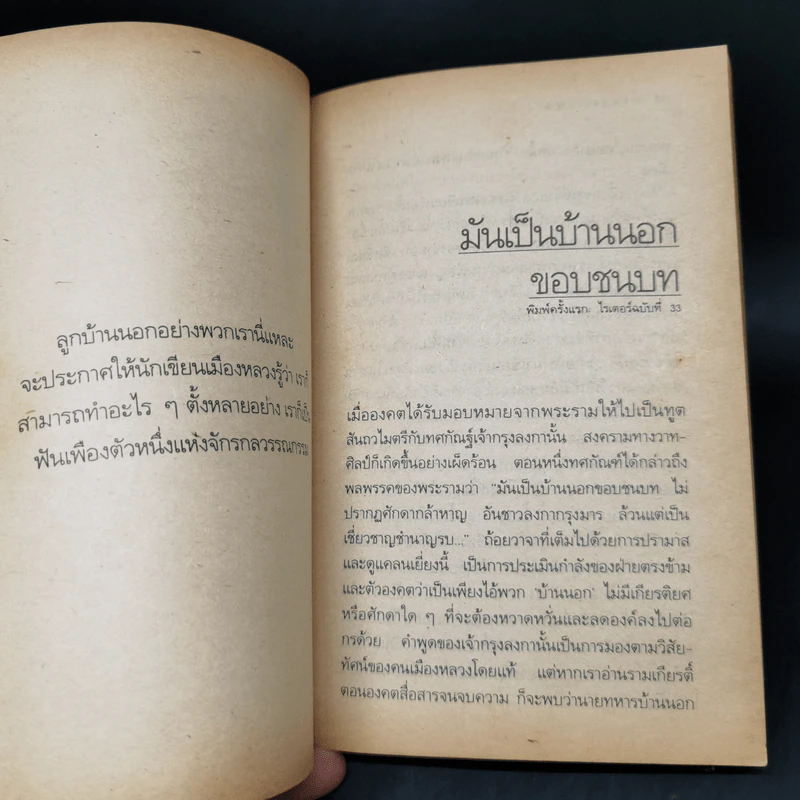 ลูกบ้านนอกอย่างพวกเรานี่แหละ
จะประกาศให้นักเขียนเมืองหลวงรู้ว่า เราก็
สามารถทำอะไร ๆ ตั้งหลายอย่าง เราก็เป็น
ฟันเฟืองตัวหนึ่งแห่งจักรกลวรรณกรรม
มันเป็นบ้านนอก
ขอบชนบท
พิมพ์ครั้งแรก: ไรเตอร์ฉบับที่ 33
เมื่อองคตได้รับมอบหมายจากพระรามให้ไปเป็นทูต
สันถวไมตรีกับทศกัณฐ์เจ้ากรุงลงกานั้น สงครามทางวาท-
ศิลป์ก็เกิดขึ้นอย่างเผ็ดร้อน ตอนหนึ่งทศกัณฑ์ได้กล่าวถึง
พลพรรคของพระรามว่า "มันเป็นบ้านนอกขอบชนบท ไม่
ปรากฏศักดากล้าหาญ อันชาวลงกากรุงมาร ล้วนแต่เป็น
เชี่ยวชาญชำนาญรบ..." ถ้อยวาจาที่เต็มไปด้วยการปรามาส
และดูแคลนเยี่ยงนี้ เป็นการประเมินกำลังของฝ่ายตรงข้าม
และตัวองคตว่าเป็นเพียงไอ้พวก 'บ้านนอก' ไม่มีเกียรติยศ
หรือศักดาใด ๆ ที่จะต้องหวาดหวั่นและลดองค์ลงไปต่อ
กรด้วย คำพูดของเจ้ากรุงลงกานั้นเป็นการมองตามวิสัย-
ทัศน์ของคนเมืองหลวงโดยแท้ แต่หากเราอ่านรามเกียรติ์
ตอนองคตสื่อสารจนจบความ ก็จะพบว่านายทหารบ้านนอก